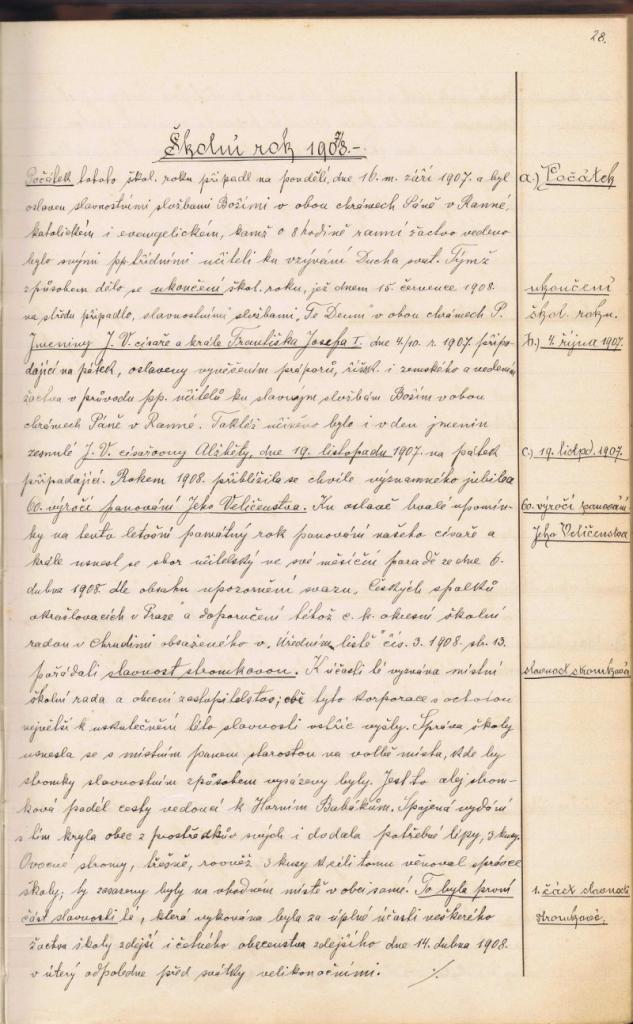 28.
Školní rok 1907/8.–
Počátek tohoto škol. roku připadl na pondělí, dne 16. m. září 1907. a byl
a.) Počátek
oslaven slavnostními službami Božími v obou chrámech Páně v Ranné,
katolickém i evangelickém, kamž o 8 hodině ranní žactvo vedeno
bylo svými pp. třídními učiteli ku vzývání Ducha svat. Týmž
způsobem dělo se ukončení škol. roku, jež dnem 15. července 1908.
ukončení
na středu připadlo, slavnostními službami „Te Deum" v obou chrámech P.
škol. roku.
Jmeniny J. V. císaře a krále Františka Josefa I. dne 4./10. r. 1907. připa-
b.) 4. října 1907.
dající na pátek, oslaveny vyvěšením praporů, říšsk. i zemského a vedením
žactva v průvodu pp. učitelů ku slavným službám Božím v obou
chrámech Páně v Ranné. Taktéž učiněno bylo i v den jmenin
zesnulé J. V. císařovny Alžběty, dne 19. listopadu 1907. na pátek
c.) 19. listpd. 1907.
připadající. Rokem 1908. přiblížila se chvíle významného jubilea
60. výročí panování Jeho Veličenstva. Ku oslavě trvale upomín-
60. výročí panování
ky na tento letošní památný rok panování našeho císaře a
Jeho Veličenstva
krále usnesl se sbor učitelský ve své měsíční poradě ze dne 6.
dubna 1908. dle obsahu upozornění svazu „Českých spolků
okrašlovacích v Praze" a doporučení téhož c. k. okresní školní
radou v Chrudimi obsaženého v „Úředním listě" čís. 3. 1908. str. 13.
pořádati slavnost stromkovou. K účasti té vyzvána místní
slavnost stromková
školní rada a obecní zastupitelstvo; obě tyto korporace s ochotou
největší k uskutečnění této slavnosti vstříc vyšly. Správa školy
usnesla se s místním panem starostou na volbě místa, kde by
stromky slavnostním způsobem vysázeny byly. Jest to alej strom-
ková podél cesty vedoucí k Horním Babákům. Spojená vydání
s tím kryla obec z prostředkův svých i dodala potřebné lípy, 3 kusy.
Ovocné stromy, třešně, rovněž 3 kusy k cíli tomu věnoval správce
školy; ty zasazeny byly na vhodném místě v obci samé. To byla první
1. část slavnosti
část slavnosti té, která vykonána byla za úplné účasti veškerého
stromkové.
žactva školy zdejší i četného obecenstva zdejšího dne 14. dubna 1908.
v úterý odpoledne před svátky velikonočními. ./.